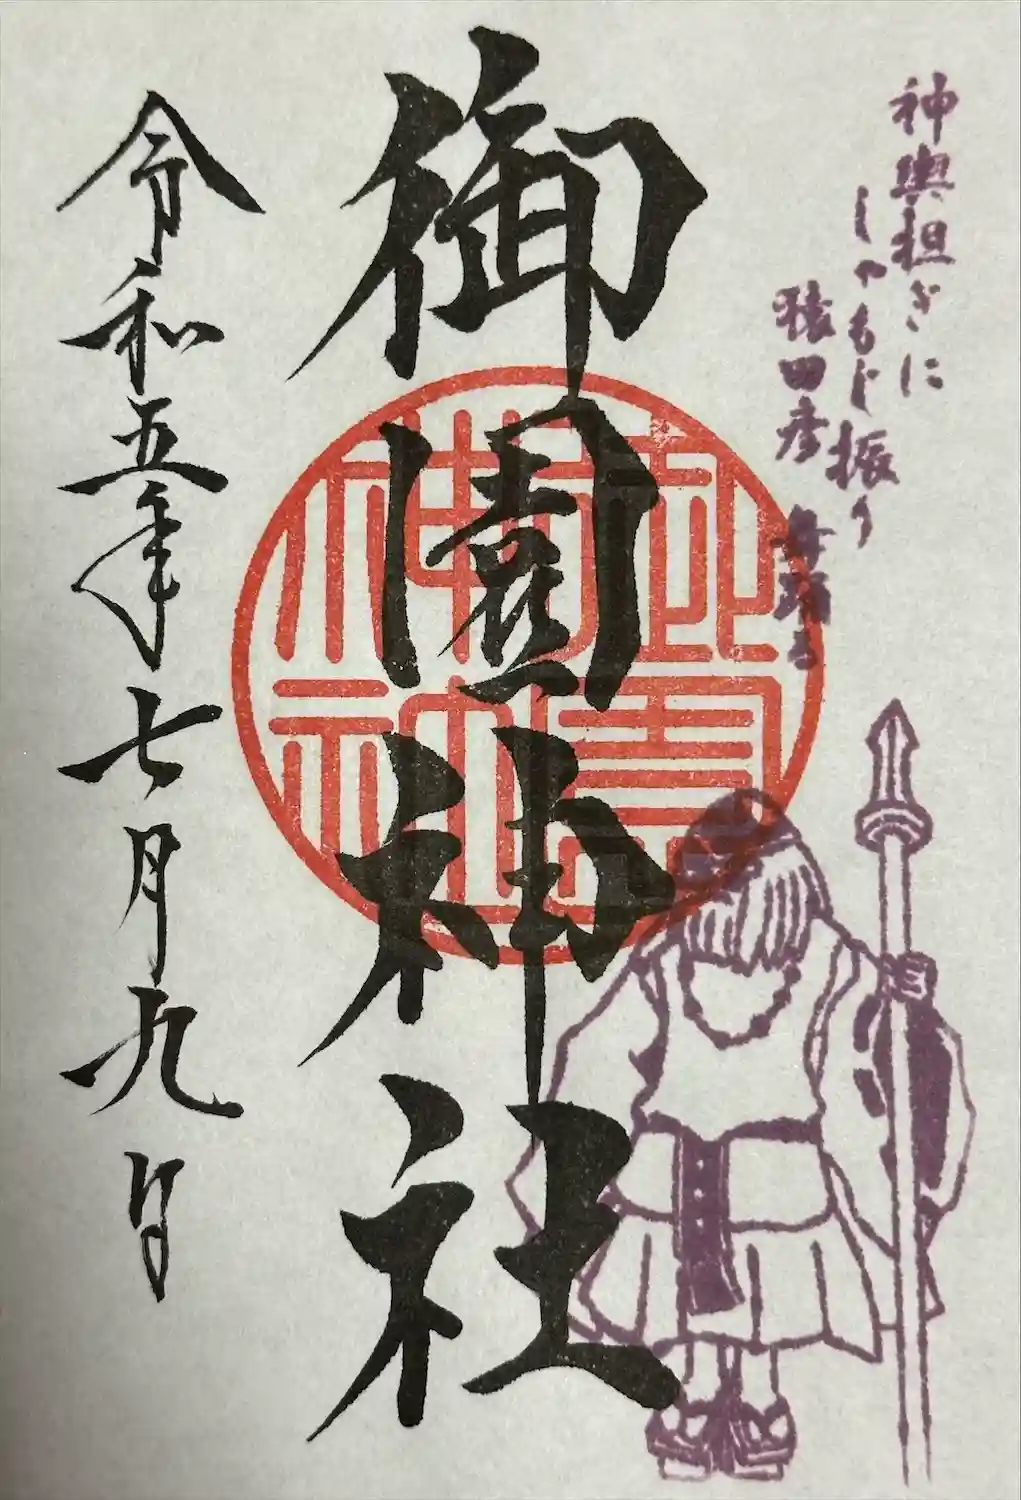 神輿担ぎに
しゃもじ振り
猿田彦 舞踊る
御園神社
令和五年七月九日